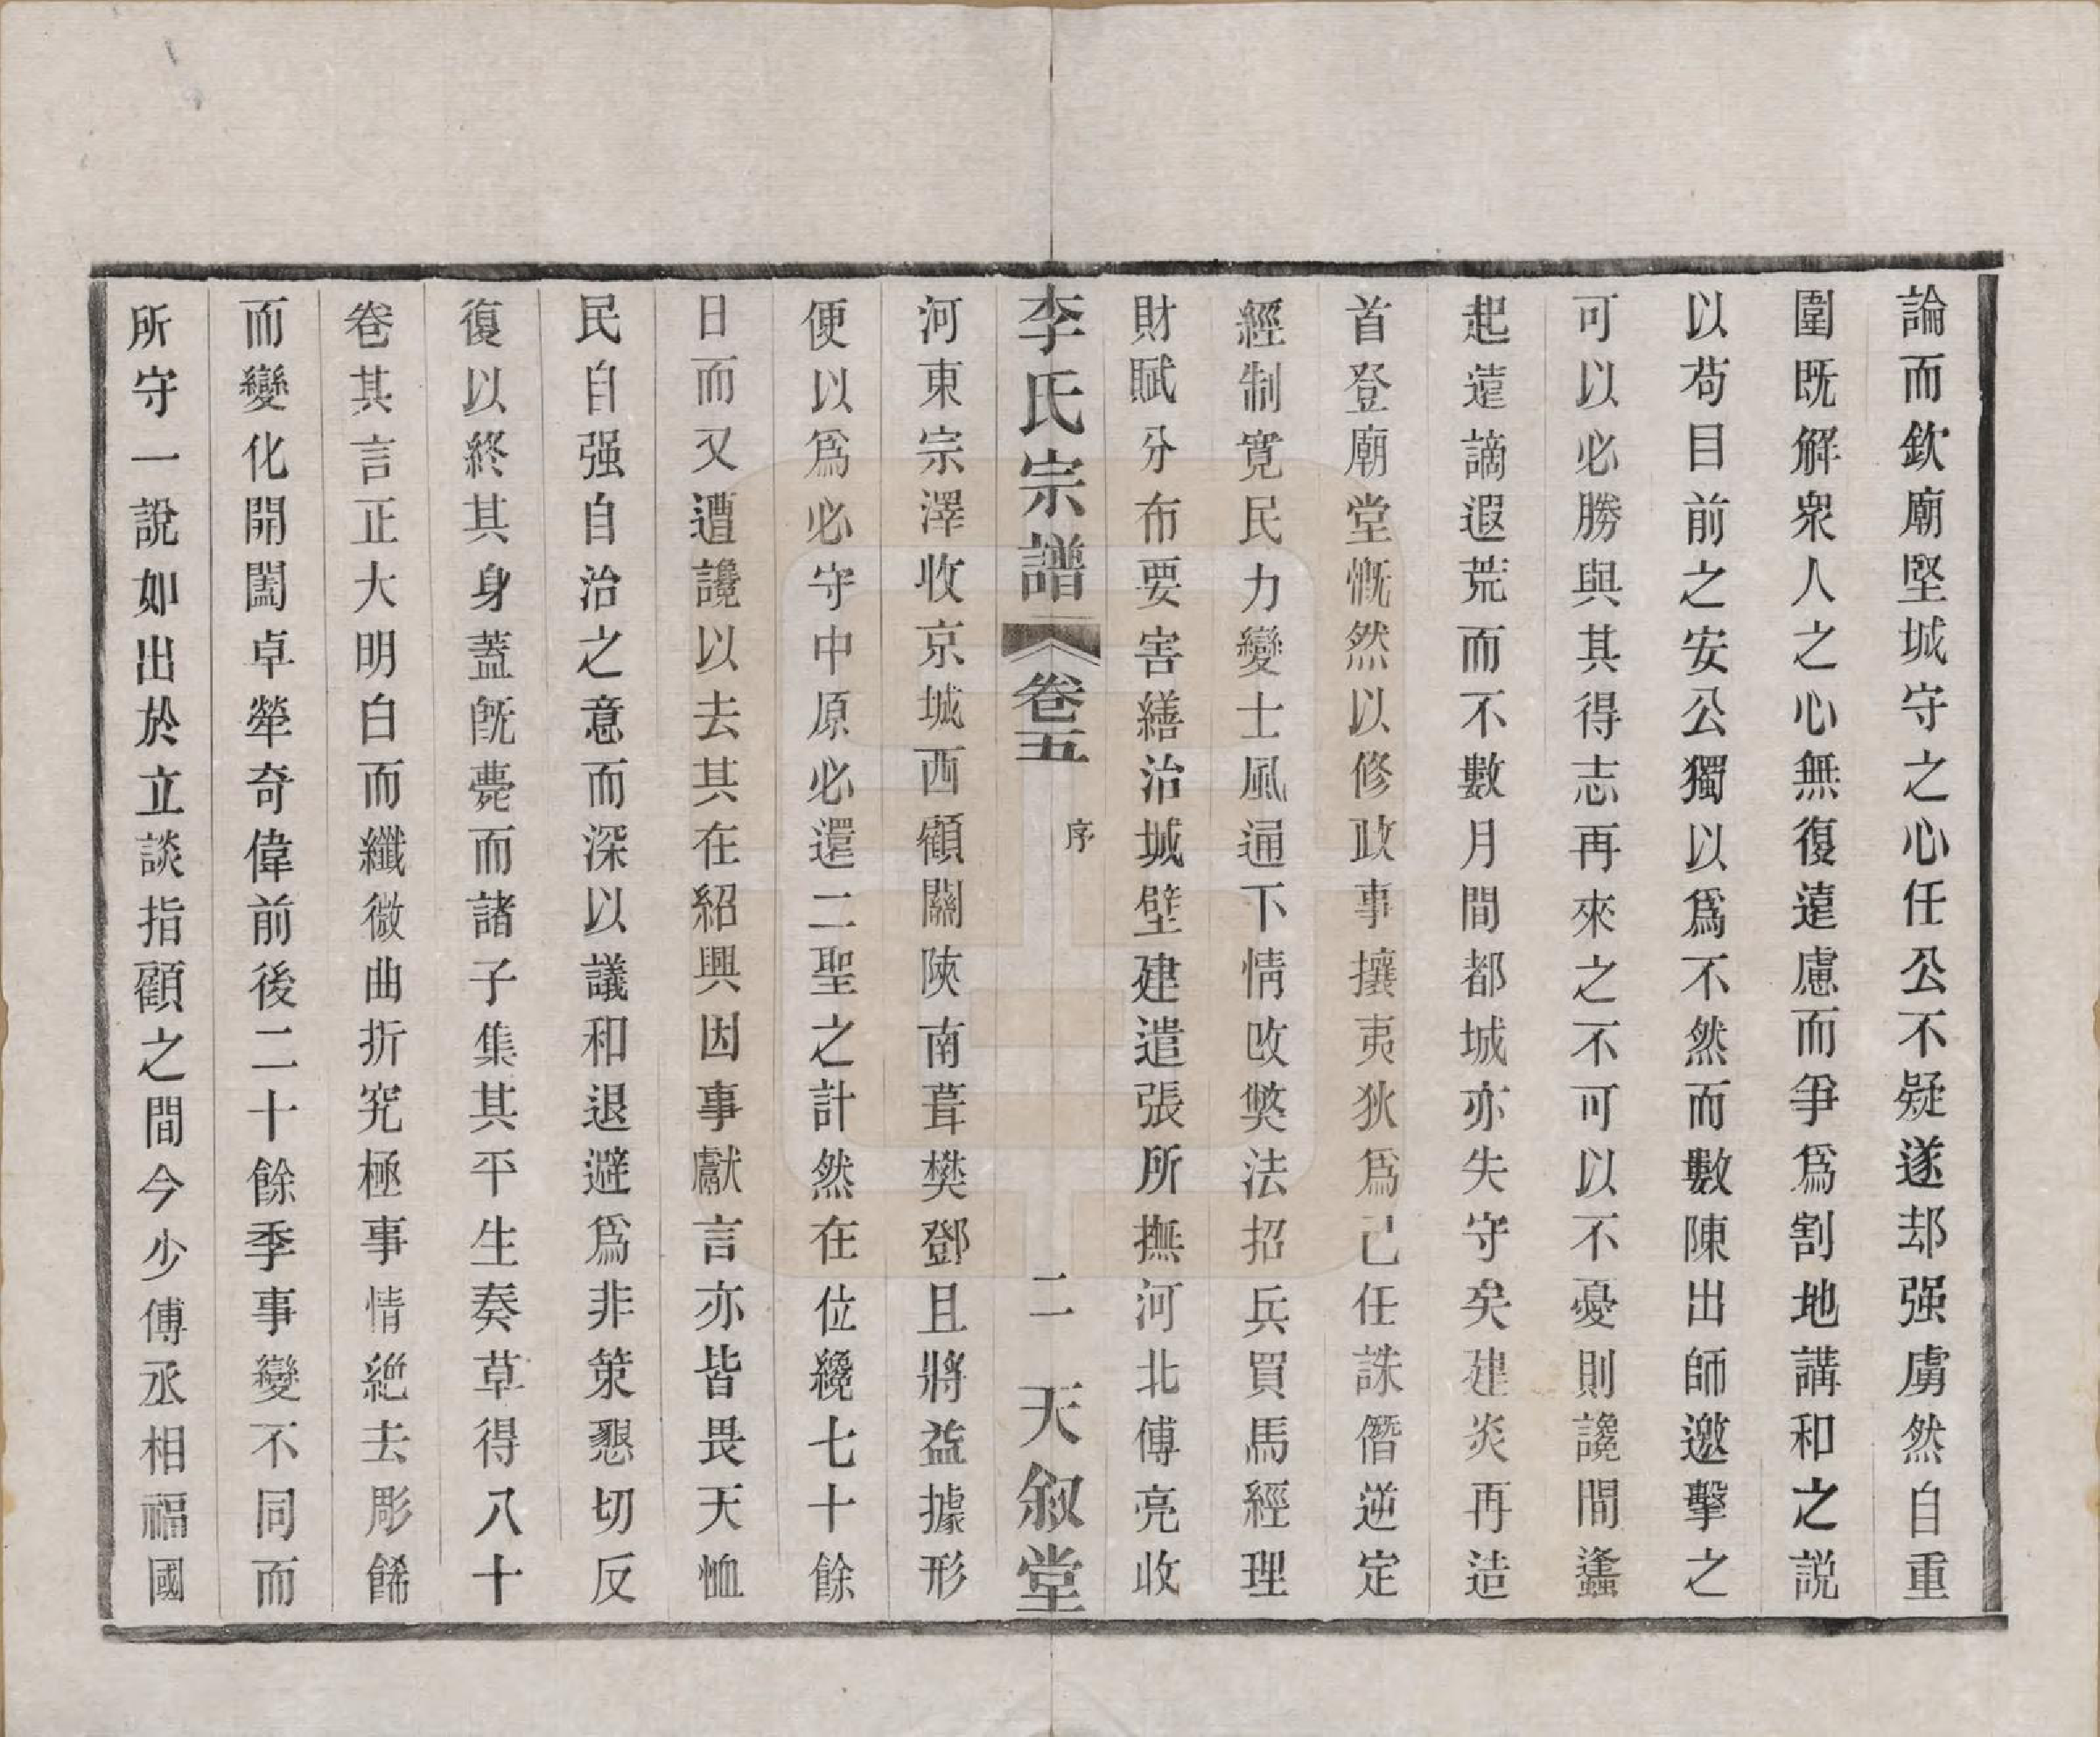 論而欽廟堅城守之心任公不疑遂却强虜然自重
圍既解衆人之心無復遠慮而爭爲割地講和之説
以苟目前之安公獨以爲不然而數陳出師邀擊之
可以必勝與其得志再來之不可以不憂則讒間蠭
起遠謫遐荒而不數月間都城亦失守矣建炎再造
首登廟堂慨然以修政事攘夷狄爲己任誅僭逆定
經制寬民力變士風通下情改獘法招兵買馬經理
財賦分布要害繕治城壁建遣張所撫河北傅亮收
李氏宗譜 卷五 序 二 天叙堂
河東宗澤收京城西顧關陝南葺樊鄧且將益據形
便以爲必守中原必還二聖之計然在位纔七十餘
日而又遭讒以去其在紹興因事獻言亦皆畏天恤
民自强自治之意而深以議和退避爲非策懇切反
復以終其身蓋旣薨而諸子集其平生奏草得八十
卷其言正大明白而纖微曲折究極事情絶去彫餙
而變化開闔卓犖奇偉前後二十餘季事變不同而
所守一說如出於立談指顧之間今少傅丞相福國